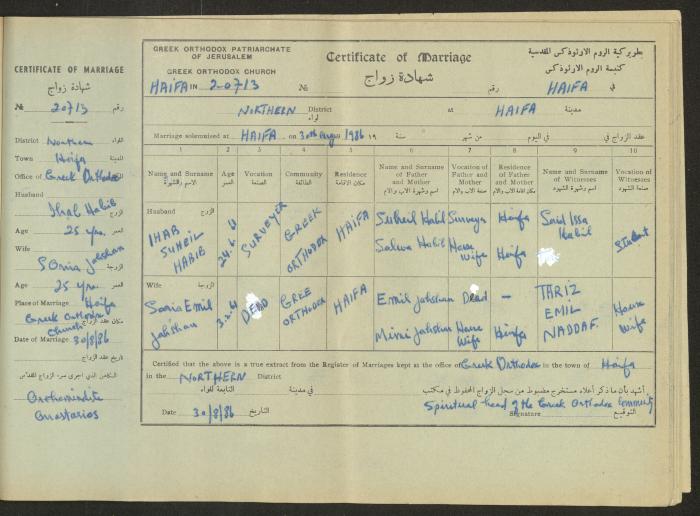 CERTIFICATE OF MARRIAGE
شهادة زواج
№ 20713 رقم
District Northern اللواء
Town Haifa المدينة
Office of Greek Orthodox
Husband
Ihab Habib
الزوج
Age 25 yrs. العمر
Wife
Sonia Jahshan
الزوجة
Age 25 yrs. العمر
Place of Marriage Haifa
Greek Orthodox
Church مكان عقد الزواج
Date of Marriage 30/8/86
تاريخ عقد الزواج
الكاهن الذي اجرى سر الزواج المقدس
Archimandite
Anastasios
GREEK ORTHODOX PATRIARCHATE
OF JERUSALEM
GREEK ORTHODOX CHURCH
Certificate of Marriage
شهادة زواج
بطريركية الروم الارثوذكس المقدسية
كنيسة الروم الارثوذكس
HAIFA IN 20713 № رقم HAIFA في
NORTHERN District لواء at HAIFA مدينة
Marriage solemnised at HAIFA on 30th Aug 1986 19 سنة من شهر في اليوم عقد الزواج
1 2 3 4 5 6 7 8 9 10
Name and Surname Age Vocation Community Residence Name and Surname of Father and Mother Vocation of Father and Mother Residence of Father and Mother Name and Surname of Witnesses Vocation of Witnesses
اسم والشهرة العمر الصنعة الطائفة مكان الاقامة اسم وشهرة الاب والام صنعة الاب والام مكان اقامة الاب والام اسم وشهرة الشهود صنعة الشهود
Husband الزوج
IHAB SUHEIL HABIB 24-6-61 SURVEYER GREEK ORTHODOX HAIFA Suheil Habib Surveya Haifa Said Issa Habib Student
Salwa Habib House Wife Haifa
Wife الزوجة
Sonia Emil Jahshan 3-2-61 DEAD GREE ORTHODOX HAIFA Emil Jahshan Dead - TARIZ EMIL NADDAF. House Wife
Mimi Jahshan House Wife Haifa
Certified that the above is a true extract from the Register of Marriages kept at the office of Greek Orthodox in the town of Haifa
in the NORTHERN District
أشهد بأن ما ذكر أعلاه مستخرج مضبوط من سجل الزواج المحفوظ في مكتب
في مدينة التابعة للواء
Spiritual head of the Greek Orthodox Community
Date 30/8/86 التاريخ Signature التوقيع